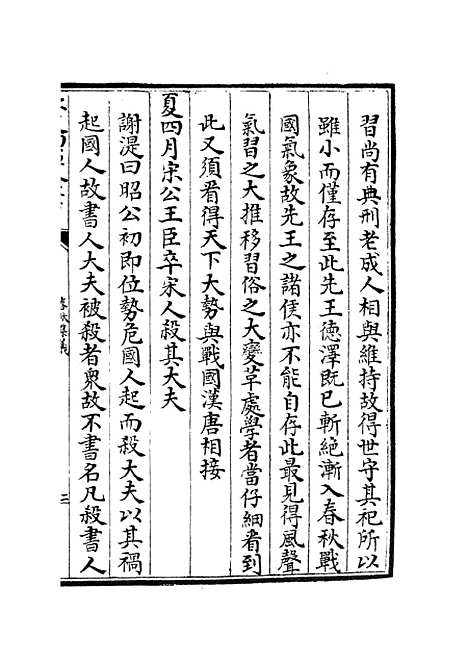 習尚有典刑老成人相與維持故得世守其祀所以
雖小而僅存至此先王徳澤既已斬絶漸入春秋戰
國氣象故先王之諸侯亦不能自存此最見得風聲
氣習之大推移習俗之大變革處學者當仔細㸔到
此又須㸔得天下大勢與戰國漢唐相接
夏四月宋公王臣卒宋人殺其大夫
謝湜曰昭公初即位勢危國人起而殺大夫以其禍
起國人故書人大夫被殺者衆故不書名凡殺書人
春秋集義
三